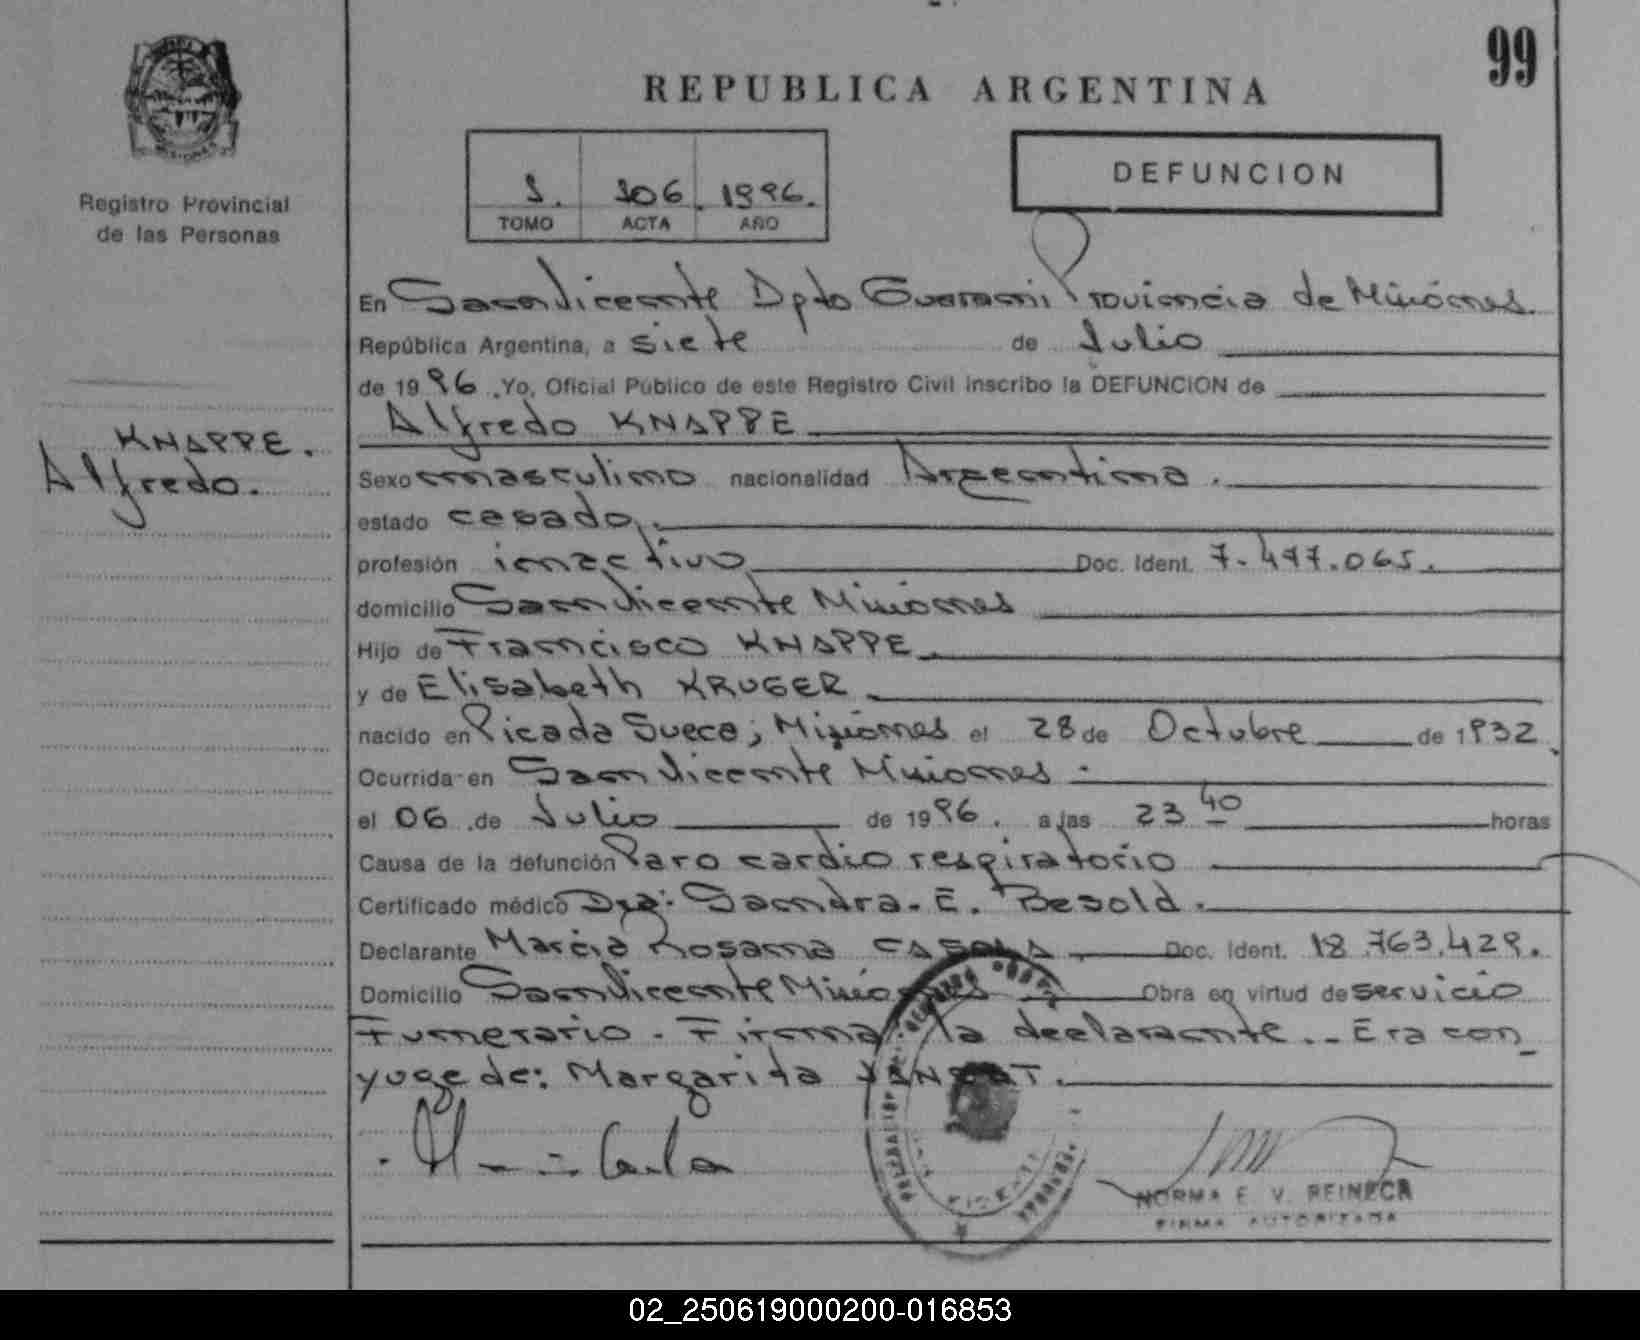 99
REPUBLICA ARGENTINA
DEFUNCION
1. 106. 1996.
TOMO ACTA AÑO
MISIONES
Registro Provincial
de las Personas
KNAPPE.
Alfredo.
En San Vicente Dpto Guarani Provincia de Misiones.
República Argentina, a siete de Julio
de 1996. Yo, Oficial Público de este Registro Civil inscribo la DEFUNCION de
Alfredo KNAPPE
Sexo masculino nacionalidad Argentina.
estado casado.
profesión inactivo Doc. Ident. 7.477.065.
domicilio San Vicente Misiones
Hijo de Francisco KNAPPE.
y de Elisabeth KRUGER
nacido en Picada Sueca; Misiones el 28 de Octubre de 1932
Ocurrida en San Vicente Misiones.
el 06 de Julio de 1996. a las 23 40 horas
Causa de la defunción Paro cardio respiratorio
Certificado médico Dra: Sandra. E. Besold.
Declarante Marcia Rosana Doc. Ident. 18.763.429.
Domicilio San Vicente Misiones Obra en virtud de servicio
Funerario. Firma la declarante.. Era con_
yuge de: Margarita
NORMA E. V. REINECK
FIRMA AUTORIZADA
02_250619000200-016853